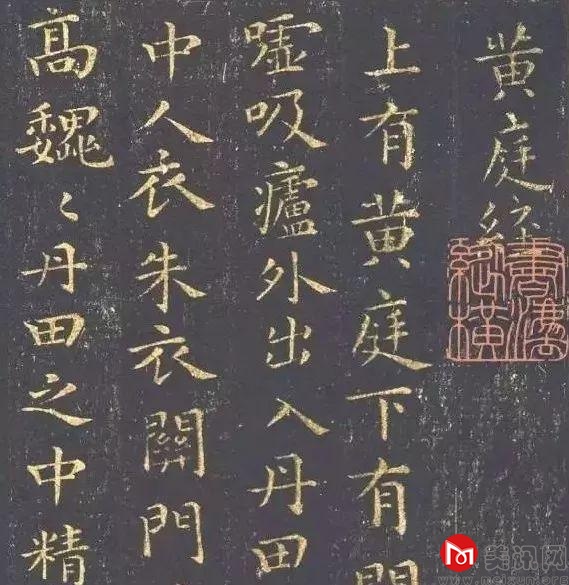 黄庭經
上有黄庭下有
噓吸廬外出入丹田
中人衣朱衣關門
髙魏〻丹田之中精
美讯网